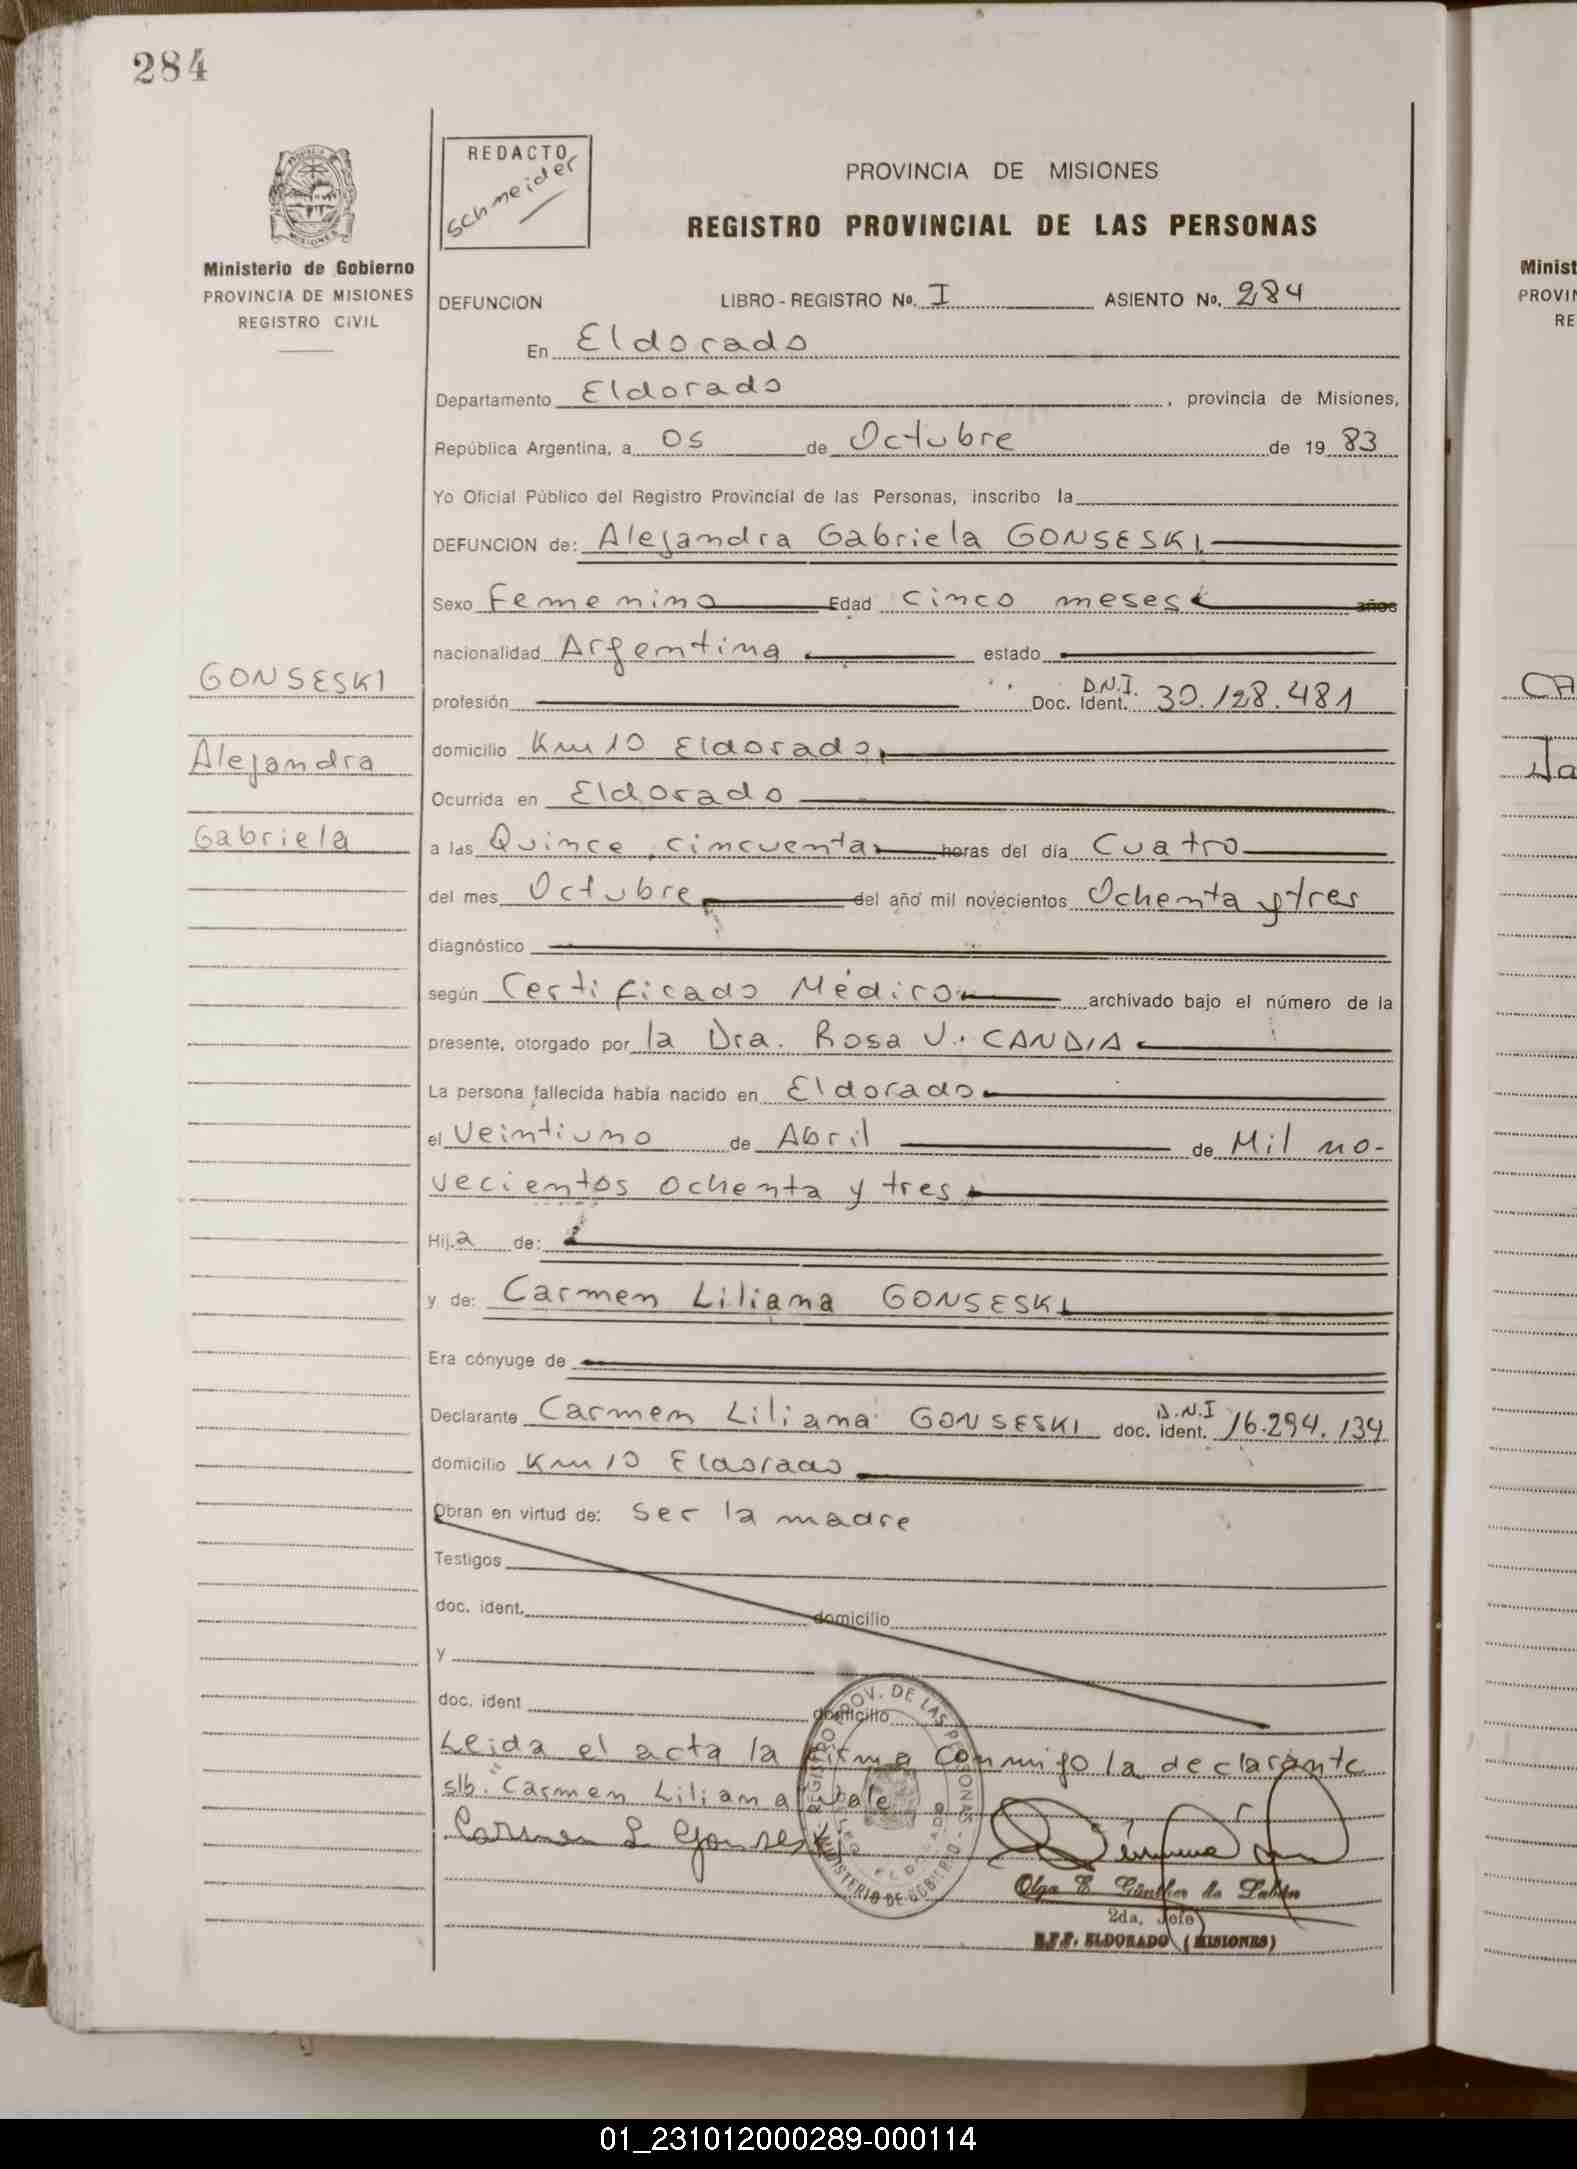 284
REDACTO
Schneider
PROVINCIA DE MISIONES
REGISTRO PROVINCIAL DE LAS PERSONAS
Ministerio de Gobierno
PROVINCIA DE MISIONES
REGISTRO CIVIL
DEFUNCION LIBRO - REGISTRO No. I ASIENTO No. 284
En Eldorado
Departamento Eldorado, provincia de Misiones,
República Argentina, a 05 de Octubre de 19 83
Yo Oficial Público del Registro Provincial de las Personas, inscribo la
DEFUNCION de: Alejandra Gabriela GONSESKI
Sexo Femenino Edad cinco meses años
nacionalidad Argentina estado
profesión Doc. Ident. D.N.I. 30.128.481
domicilio Km 10 Eldorado
Ocurrida en Eldorado
a las Quince, cincuenta horas del día Cuatro
del mes Octubre del año mil novecientos Ochenta y tres
diagnóstico
según Certificado Médico archivado bajo el número de la
presente, otorgado por la Dra. Rosa V. CANDIA
La persona fallecida había nacido en Eldorado
el Veintiuno de Abril de Mil no-
vecientos ochenta y tres
Hij a de:
y de: Carmen Liliana GONSESKI
Era cónyuge de
Declarante Carmen Liliana GONSESKI doc. ident. D.N.I 16.294.134
domicilio Km 10 Eldorado
Obran en virtud de: ser la madre
Testigos
doc. ident. domicilio
y
doc. ident domicilio
Leida el acta la firma conmigo la declarante
s/b. "Carmen Liliana" vale
Carmen L Gonseski
REGISTRO PROV. DE LAS PERSONAS
MINISTERIO DE GOBIERNO
Olga E. Günther de
2da. Jefe
R.P.P. ELDORADO (MISIONES)
GONSESKI
Alejandra
Gabriela
Minist
PROVIN
RE
CA
Ja
01_231012000289-000114